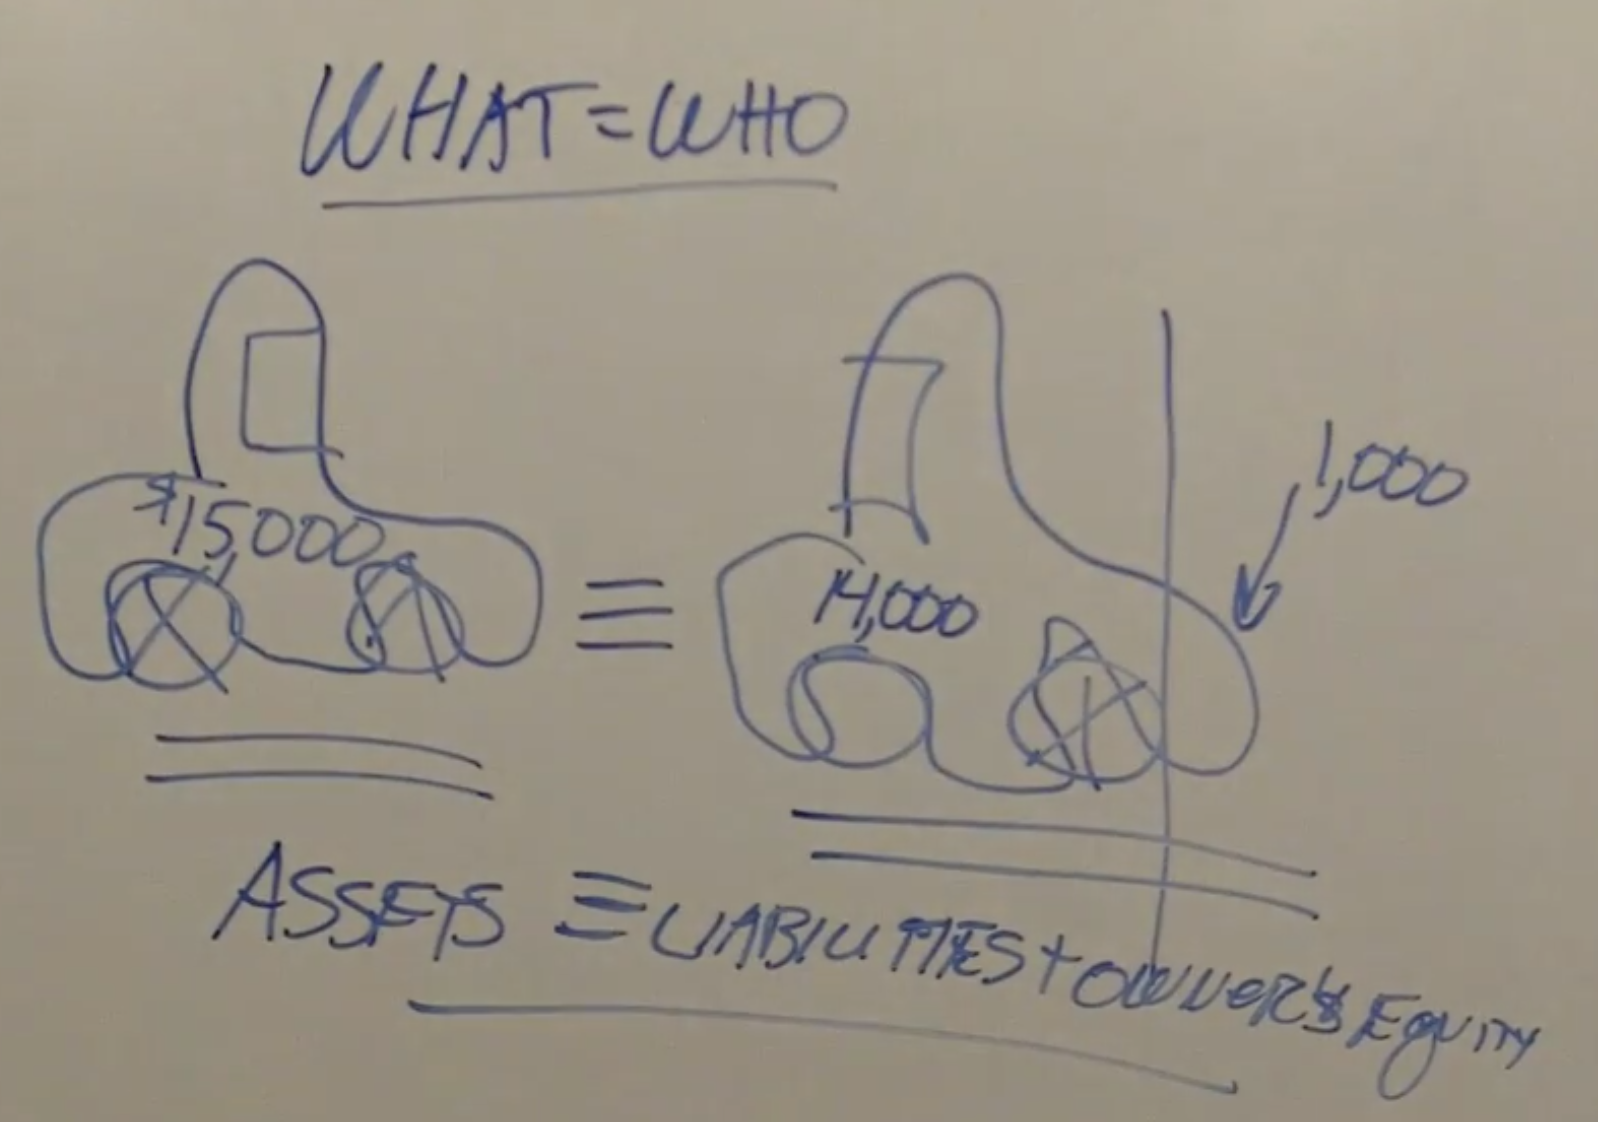 WHAT=WHO
$15,000
≡
14,000
1,000
ASSETS ≡ LIABILITIES + OWNER'S EQUITY